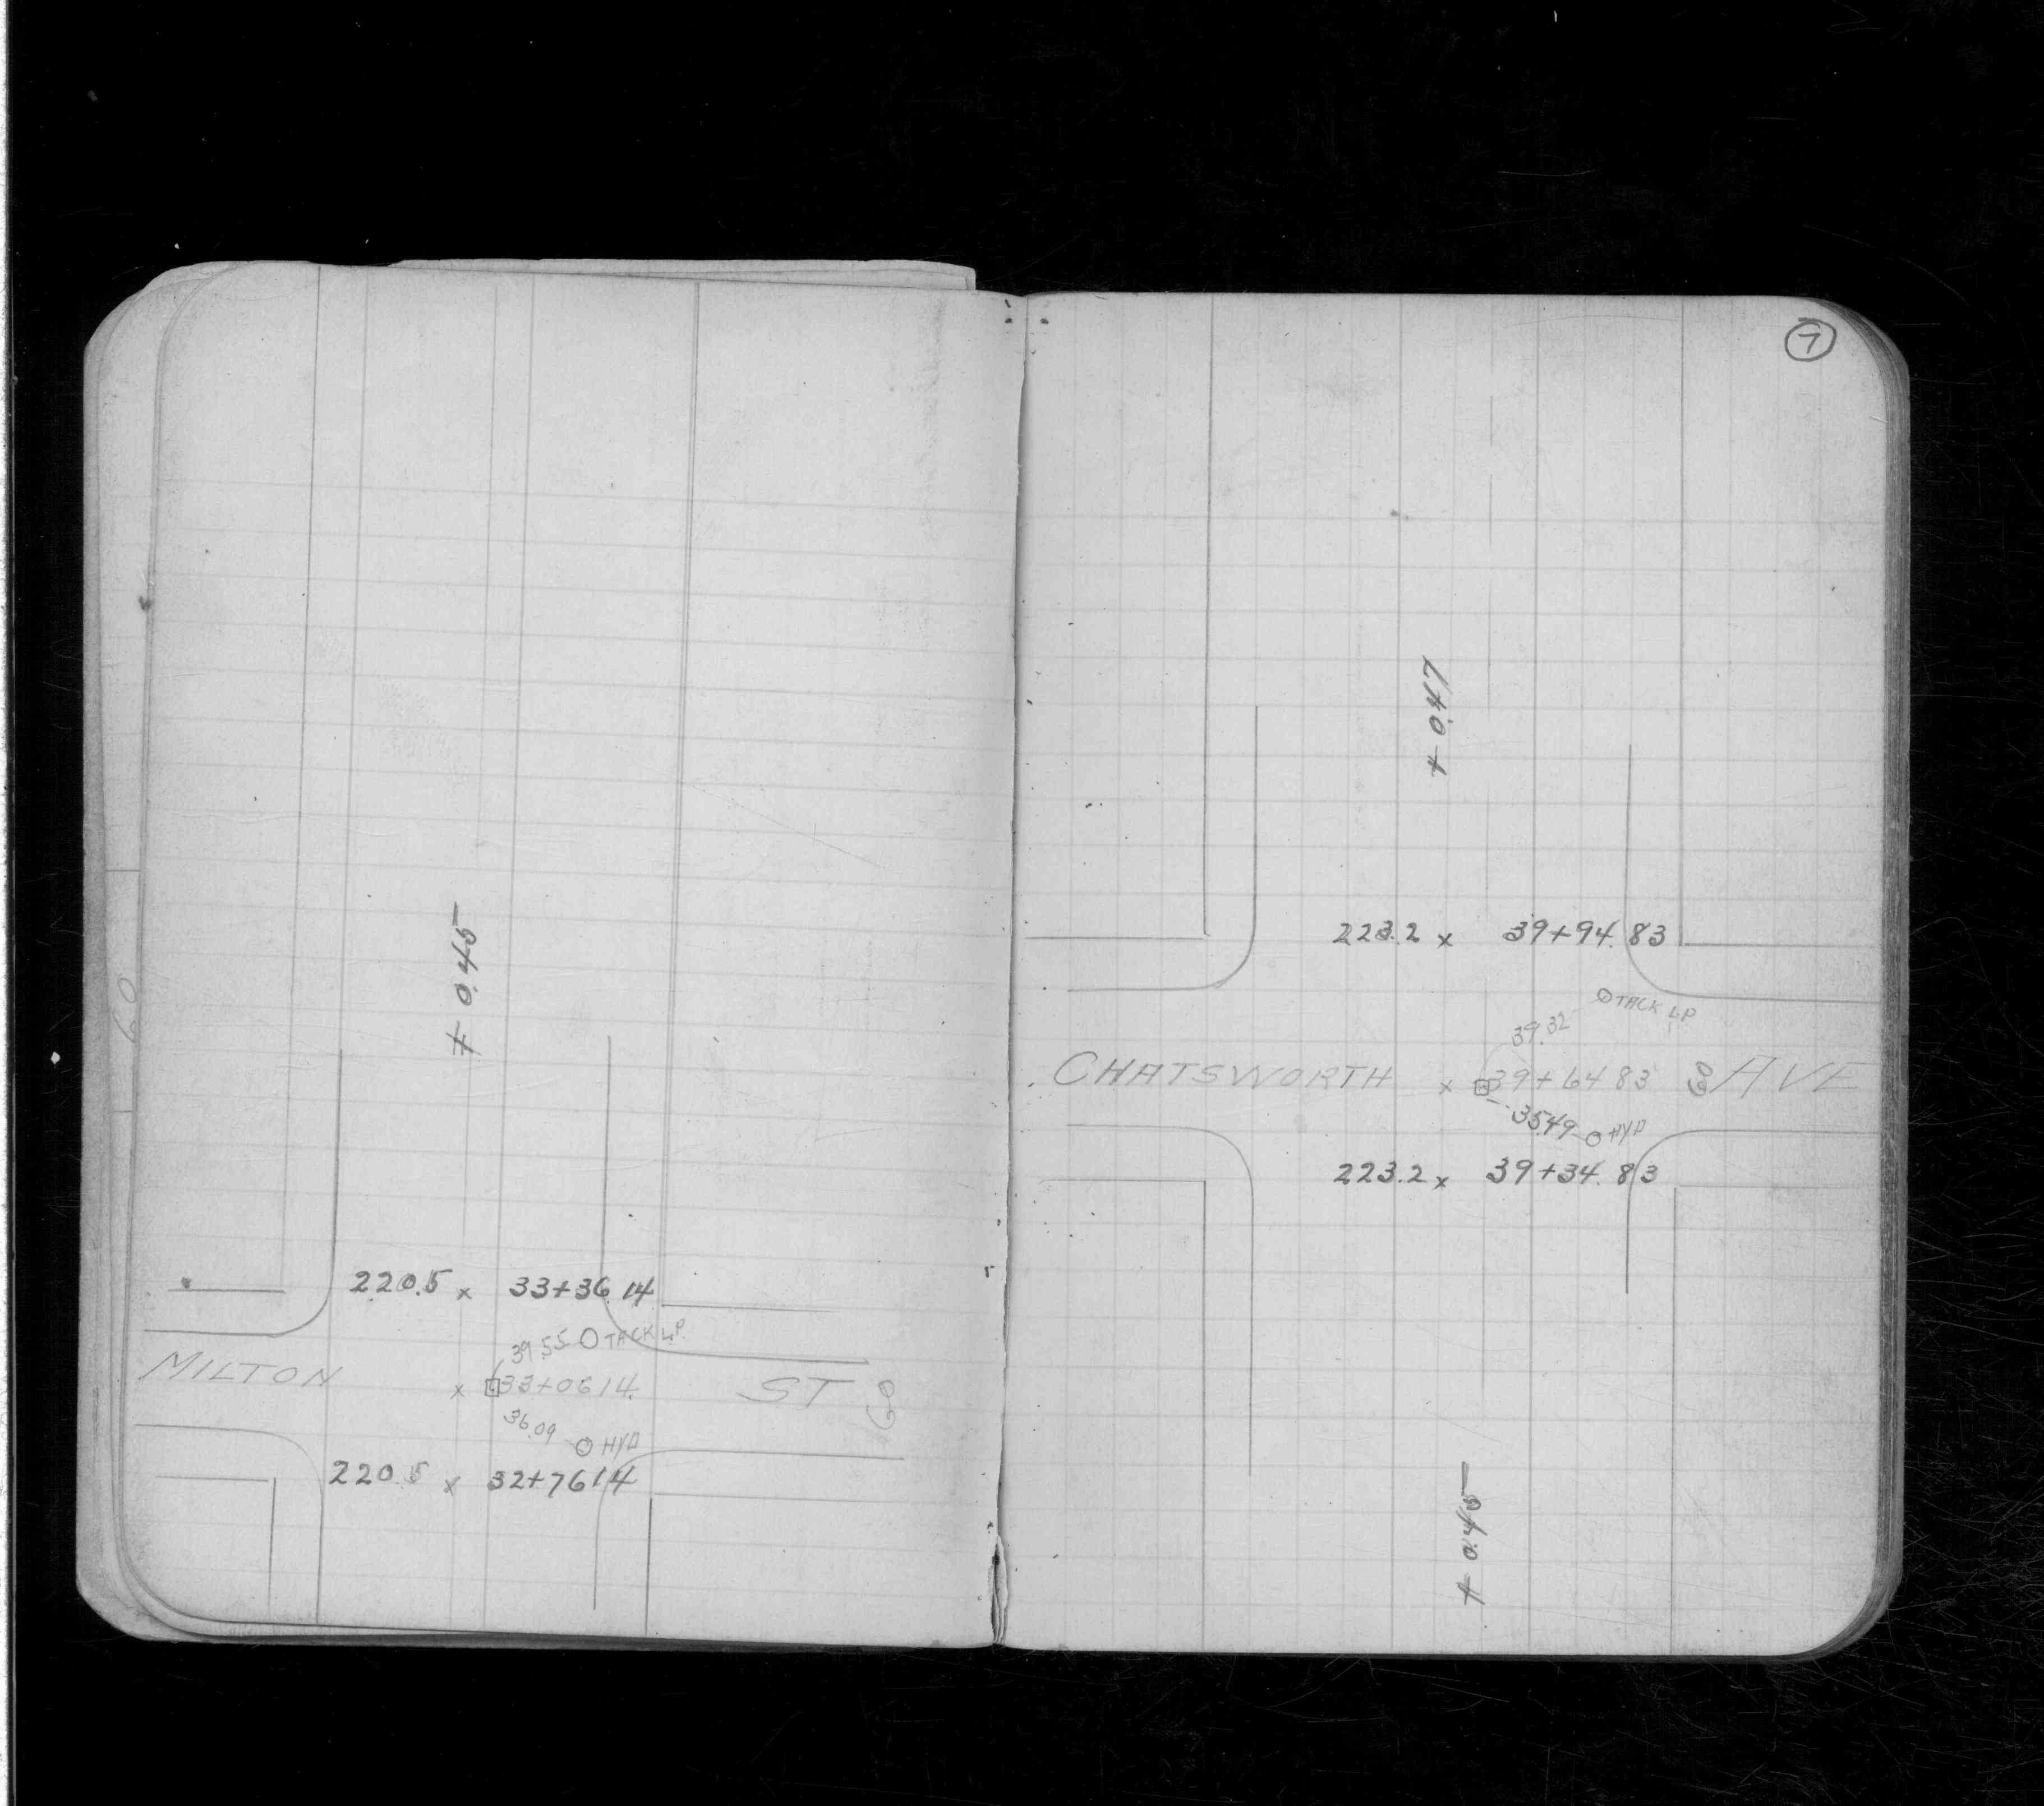 60
+ 0.45
220.5 x 33+36.14
39.55 TACK L.P.
MILTON x 33+06 14 ST 60
36.09 HYD
220.5 x 32+76 14
7
+ 0.47
223.2 x 39+94.83
TACK L.P
39.32
CHATSWORTH x 39+64 83 60 AVE
35.49 HYD
223.2 x 39+34.83
+ 0.45